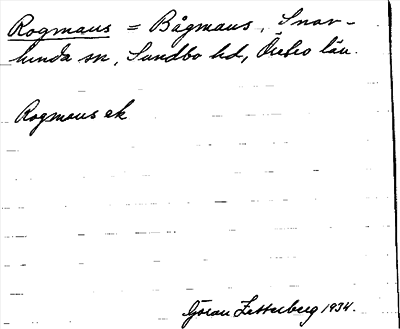 Rogmans = Bågmans, Snav-
lunda sn, Sundbo hd, Örebro län.
Rogmans ek
Göran Zetterberg 1934.